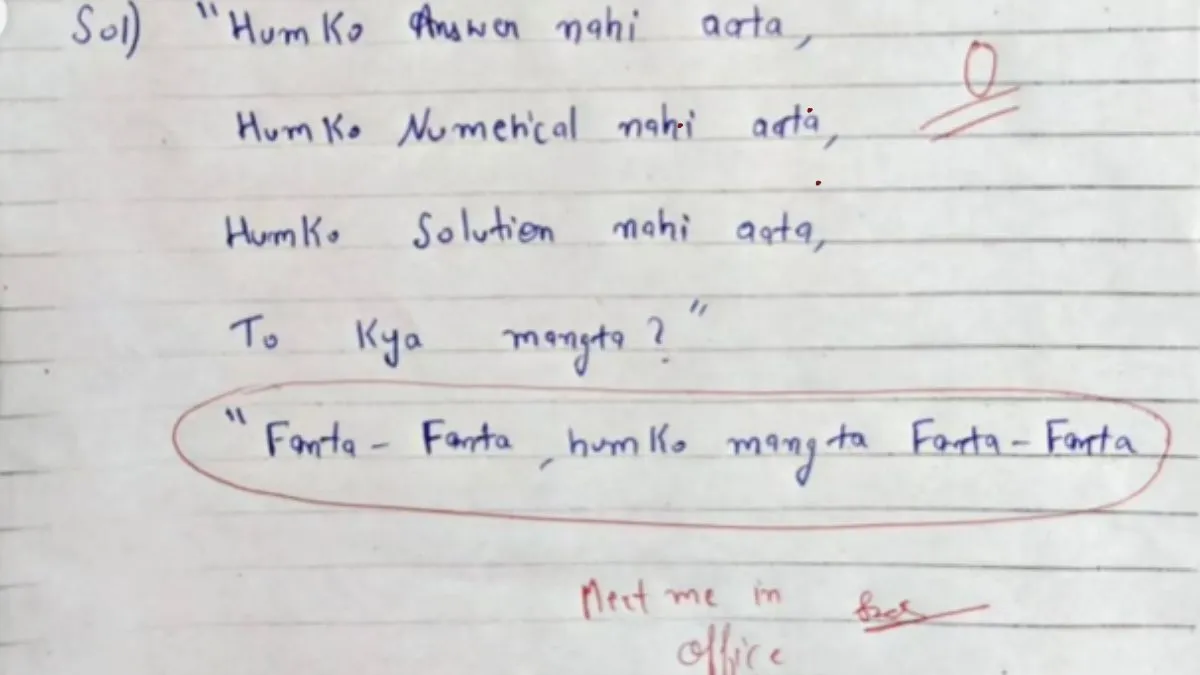 Sol) "Humko Answer nahi aata,
0
Humko Numerical nahi aata,
Humko Solution nahi aata,
To Kya mangta?"
"Fanta - Fanta, humko mangta Fanta - Fanta
Meet me in
office